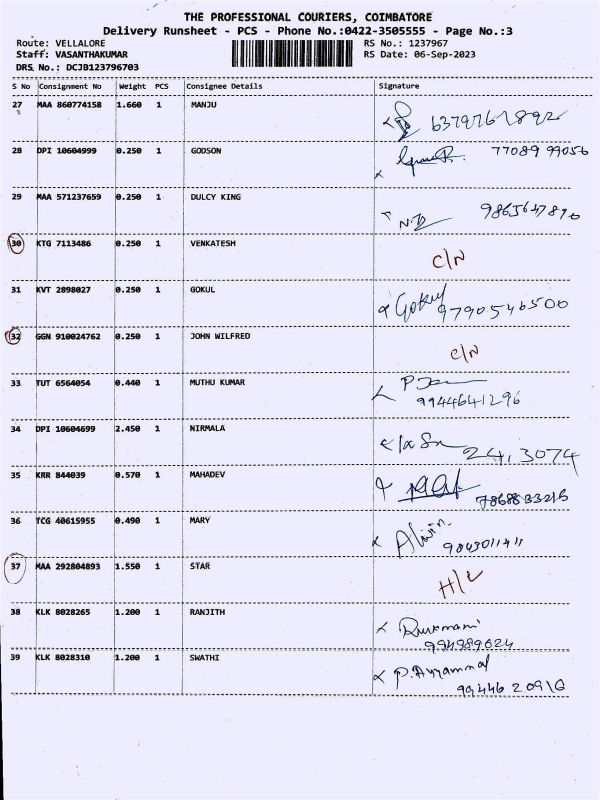 THE PROFESSIONAL COURIERS, COIMBATORE
Delivery Runsheet - PCS - Phone No.:0422-3505555 - Page No.:3
Route: VELLALORE RS No.: 1237967
Staff: VASANTHAKUMAR RS Date: 06-Sep-2023
DRS No.: DCJB123796703
S No Consignment No Weight PCS Consignee Details Signature
27 MAA 860774158 1.660 1 MANJU
28 DPI 10604999 0.250 1 GODSON 77089 99056
29 MAA 571237659 0.250 1 DULCY KING
30 KTG 7113486 0.250 1 VENKATESH C/N
31 KVT 2898027 0.250 1 GOKUL Gokul 9790546500
32 GGN 910024762 0.250 1 JOHN WILFRED C/N
33 TUT 6564054 0.440 1 MUTHU KUMAR 9944641296
34 DPI 10604699 2.450 1 NIRMALA 24,3074
35 KRR 844039 0.570 1 MAHADEV
36 TCG 40615955 0.490 1 MARY
37 MAA 292804893 1.550 1 STAR
38 KLK 8028265 1.200 1 RANJITH
39 KLK 8028310 1.200 1 SWATHI P. Ayyammal